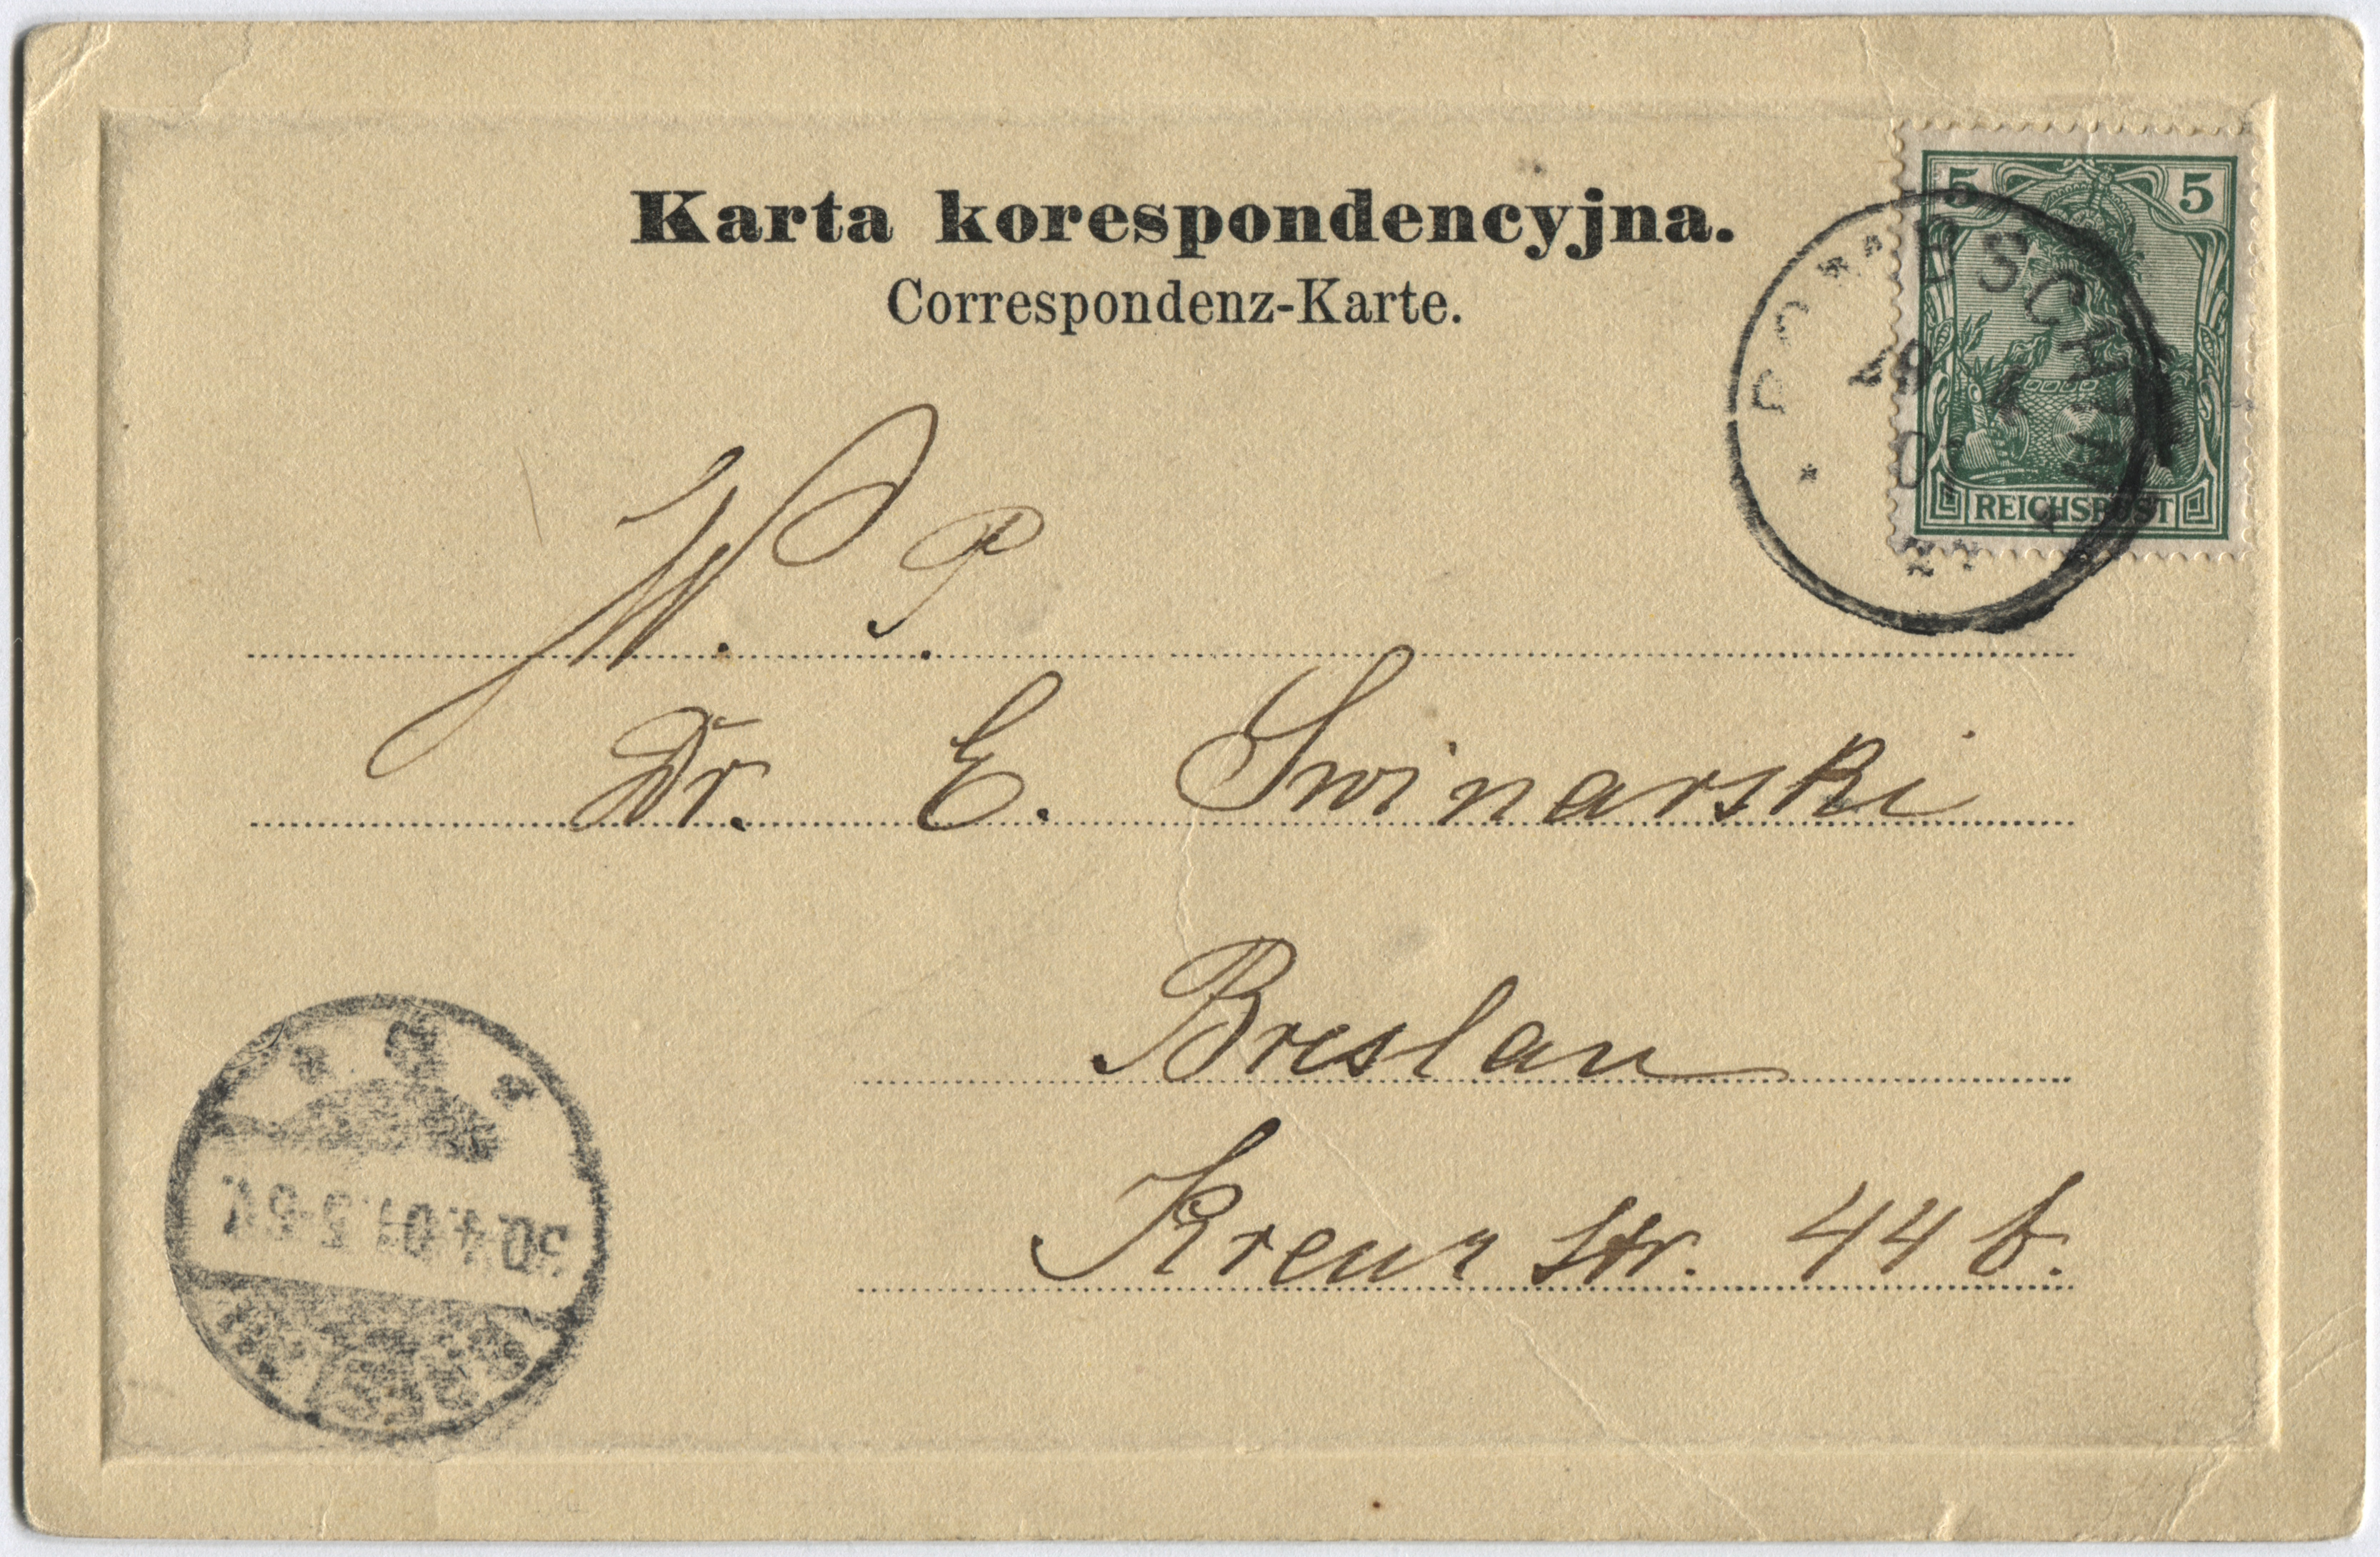 Karta korespondencyjna.
Correspondenz-Karte.
5 5
REICHSPOST
W. P.
Dr. E. Swinarski
Breslau
Kreuz str. 44 b.
30.4.01.5-6V.